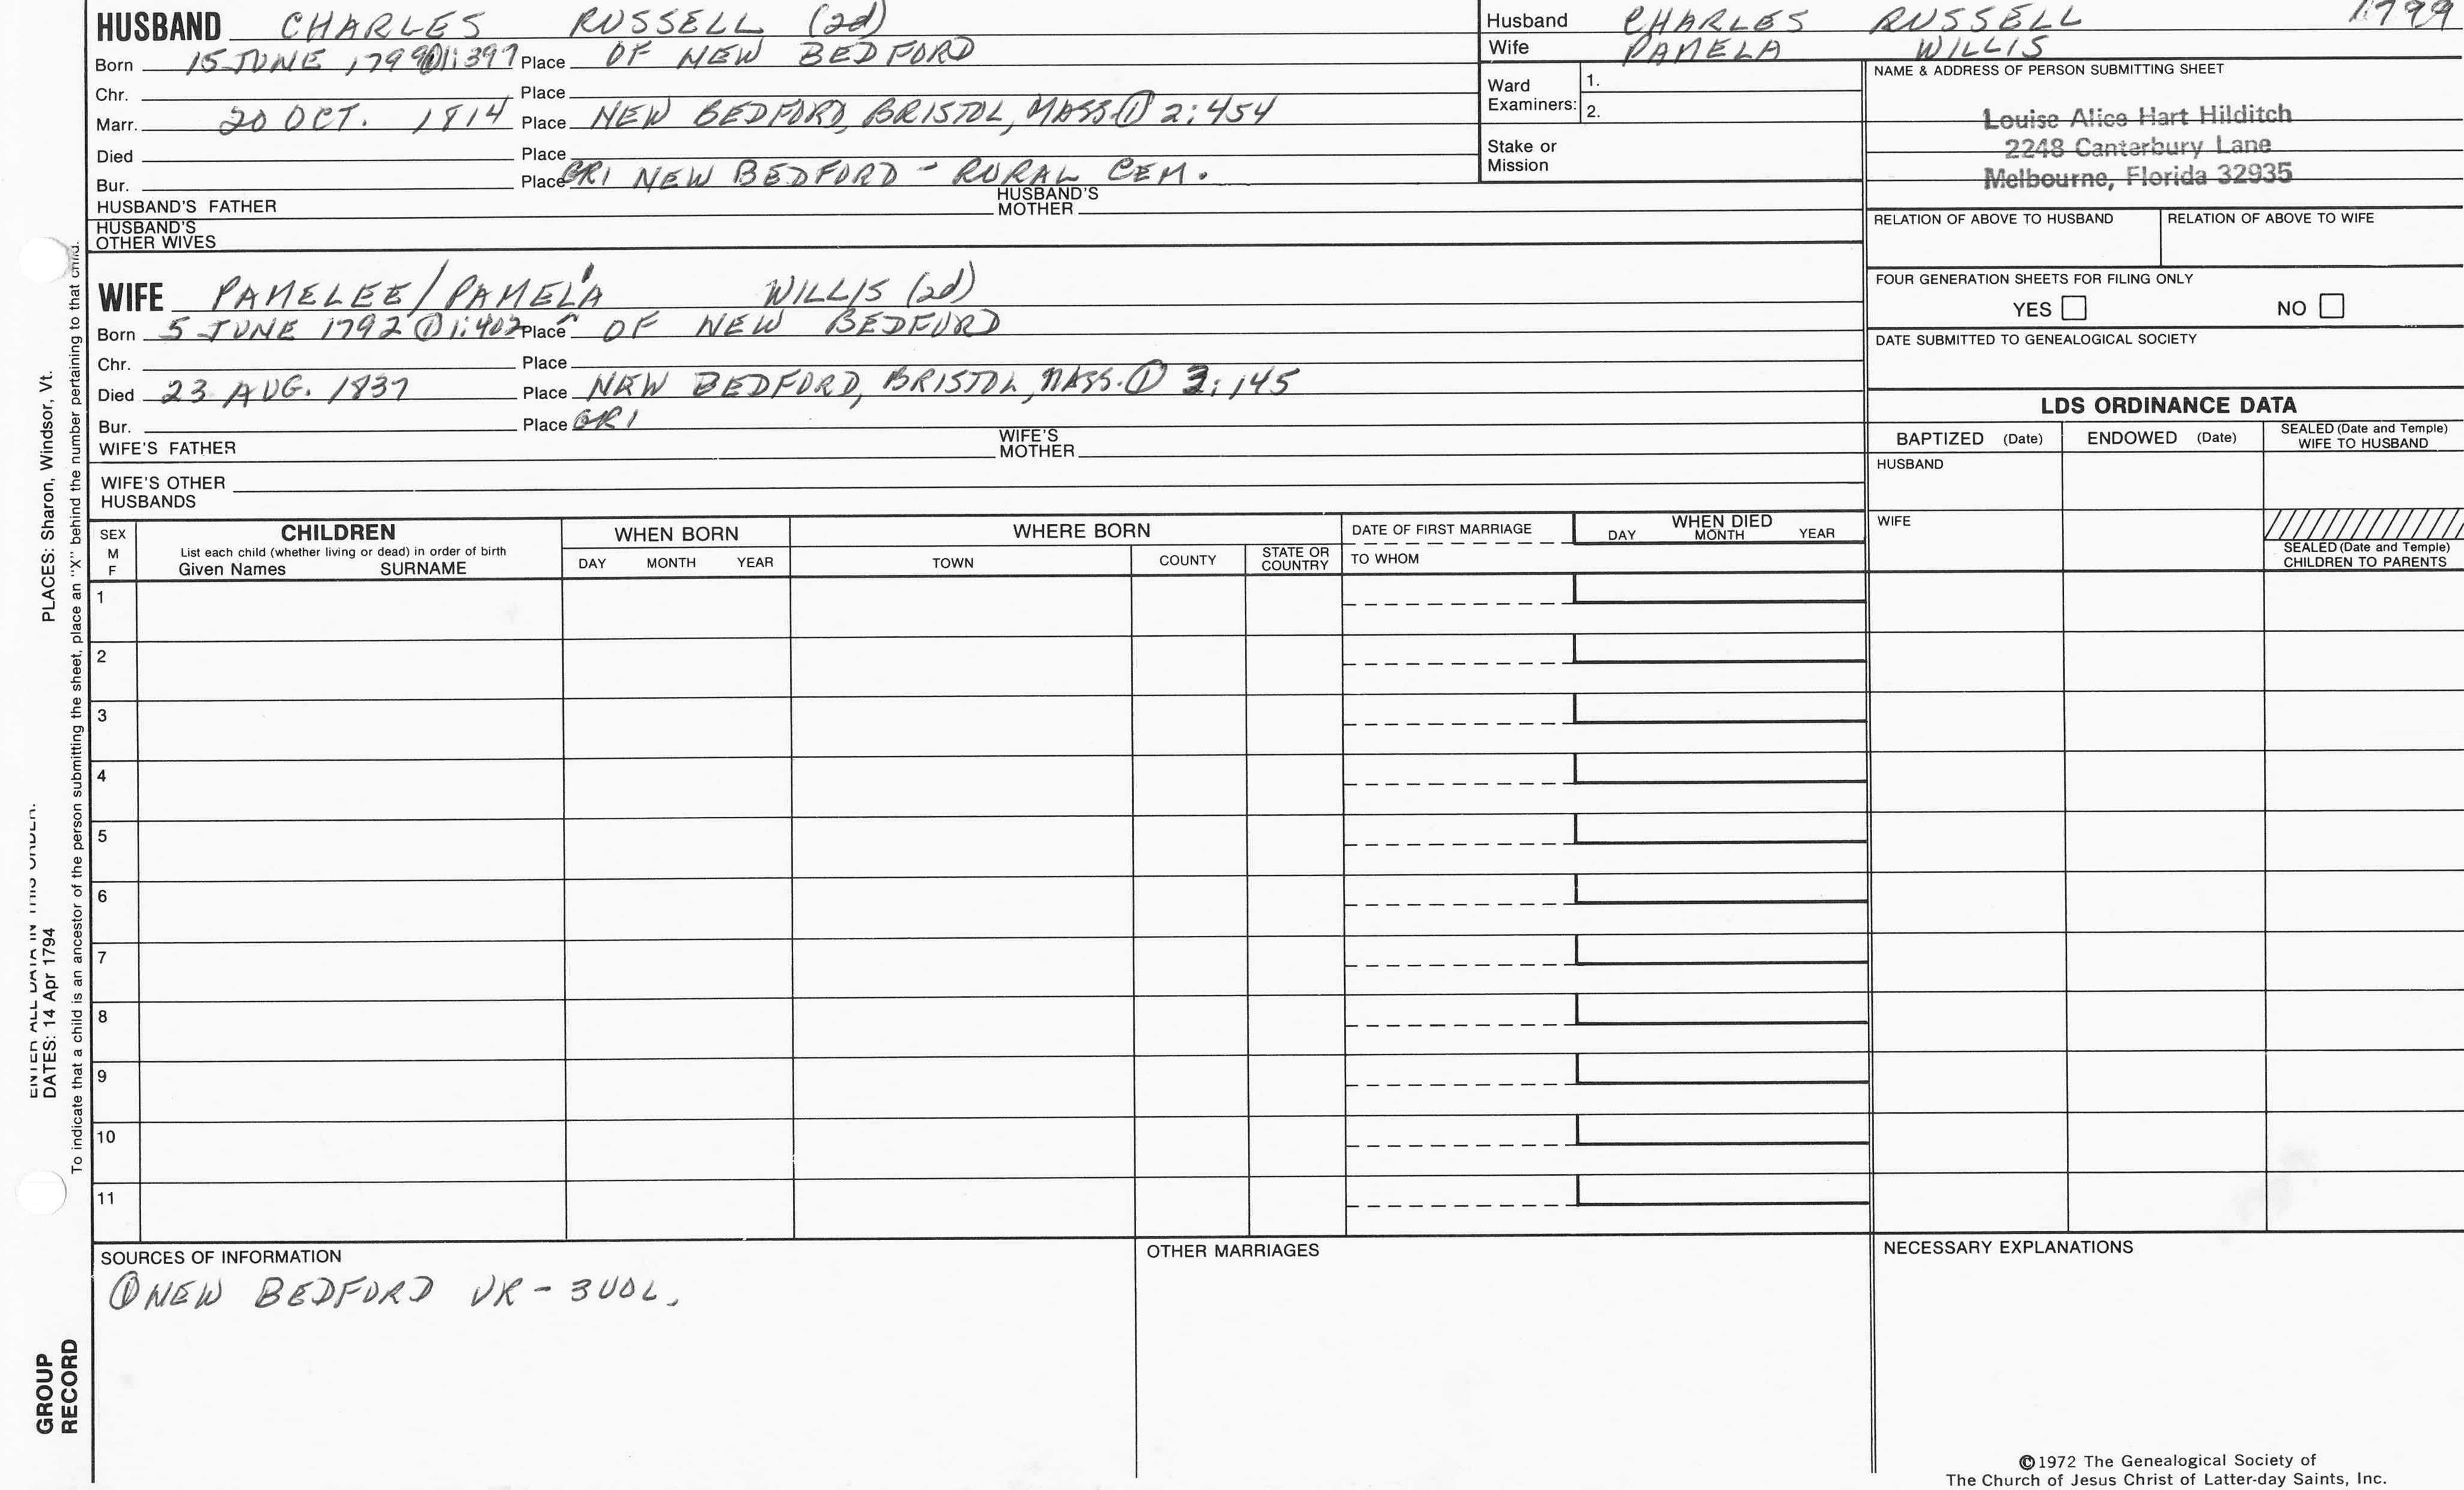 HUSBAND CHARLES RUSSELL (2d)
Born 15 JUNE 1799 ① 1:397 Place OF NEW BEDFORD
Chr. Place
Marr. 20 OCT. 1814 Place NEW BEDFORD, BRISTOL, MASS. ① 2:454
Died Place
Bur. Place GR1 NEW BEDFORD - RURAL CEM.
HUSBAND'S FATHER HUSBAND'S MOTHER
HUSBAND'S OTHER WIVES
WIFE PAMELEE/PAMELA WILLIS (2d)
Born 5 JUNE 1792 ① 1:402 Place OF NEW BEDFORD
Chr. Place
Died 23 AUG. 1837 Place NEW BEDFORD, BRISTOL, MASS. ① 3:145
Bur. Place GR1
WIFE'S FATHER WIFE'S MOTHER
WIFE'S OTHER HUSBANDS
Husband CHARLES RUSSELL 1799
Wife PAMELA WILLIS
Ward Examiners: 1.
2.
Stake or Mission
NAME & ADDRESS OF PERSON SUBMITTING SHEET
Louise Alice Hart Hilditch
2248 Canterbury Lane
Melbourne, Florida 32935
RELATION OF ABOVE TO HUSBAND RELATION OF ABOVE TO WIFE
FOUR GENERATION SHEETS FOR FILING ONLY
YES NO
DATE SUBMITTED TO GENEALOGICAL SOCIETY
LDS ORDINANCE DATA
BAPTIZED (Date) ENDOWED (Date) SEALED (Date and Temple) WIFE TO HUSBAND
HUSBAND
WIFE
SEALED (Date and Temple) CHILDREN TO PARENTS
SEX M F
CHILDREN
List each child (whether living or dead) in order of birth
Given Names SURNAME
WHEN BORN
DAY MONTH YEAR
WHERE BORN
TOWN COUNTY STATE OR COUNTRY
DATE OF FIRST MARRIAGE
TO WHOM
WHEN DIED
DAY MONTH YEAR
1
2
3
4
5
6
7
8
9
10
11
SOURCES OF INFORMATION
① NEW BEDFORD VR - 3 VOL.
OTHER MARRIAGES
NECESSARY EXPLANATIONS
©1972 The Genealogical Society of
The Church of Jesus Christ of Latter-day Saints, Inc.
PLACES: Sharon, Windsor, Vt.
ENTER ALL DATA IN THIS ORDER:
DATES: 14 Apr 1794
To indicate that a child is an ancestor of the person submitting the sheet, place an "X" behind the number pertaining to that child.
GROUP
RECORD